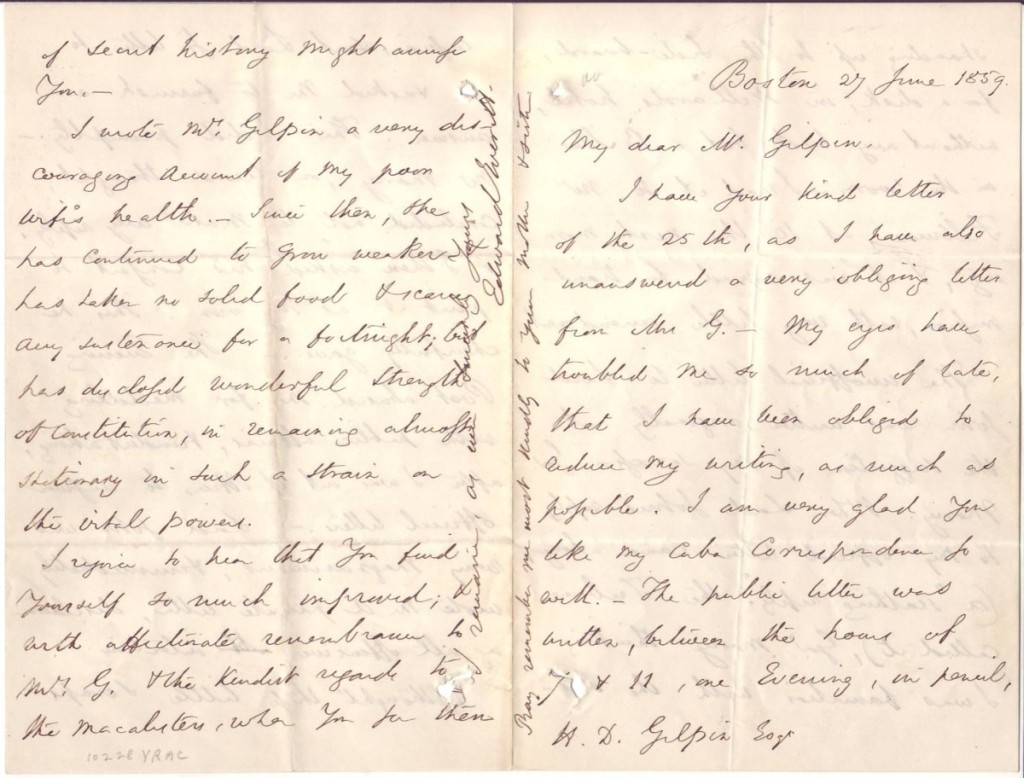 Boston 27 June 1859.
My dear Mr. Gilpin.
I have your kind letter
of the 25th, as I have also
unanswered a very obliging letter
from Mrs G. – My eyes have
troubled me so much of late,
that I have been obliged to
reduce my writing, as much as
possible. I am very glad you
like my Cuba Correspondence so
well. – The public letter was
written, between the hours of
7 & 11, one Evening, in pencil,
H. D. Gilpin Esqr
of secret history might amuse
You. –
I wrote Mrs. Gilpin a very dis-
couraging account of my poor
wife's health. – Since then, she
has continued to grow weaker
has taken no solid food & scarce
any sustenance for a fortnight; but
has disclosed wonderful strength
of Constitution, in remaining almost
stationary in such a strain on
the vital powers.
I rejoice to hear that you find
Yourself so much improved; &
with affectionate remembrance to
Mrs. G. & the kindest regards to
the Macalesters, when you see them
& I remain, as ever sincerely Yours
Edward Everett.
Pray remember me most kindly to your mother & sister
10228 YRAC